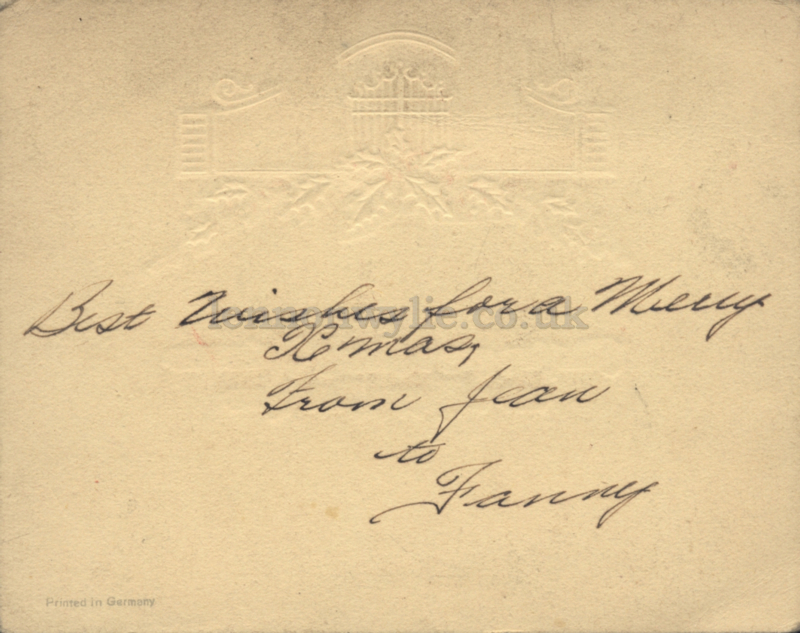 Best Wishes for a Merry
Xmas,
From Jean
to
Fanny
Printed in Germany
lennonwylie.co.uk